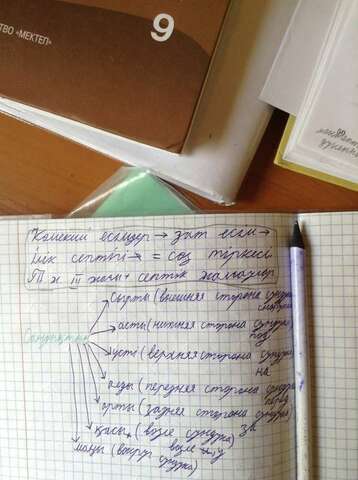 СТВО «МЕКТЕП»
9
Көмекші есімдер → зат есім →
Ілік септігі → = сөз тіркесі
ІІІ жағы + септік жалғаулар
Сандықтың
сырты (внешняя сторона сундука
асты (нижняя сторона сундука
под
үсті (верхняя сторона сундука
на
алды (передняя сторона сундука
перед
арты (задняя сторона сундука)
за
қасы (возле сундука)
возле, у
маңы (вокруг
сундука)